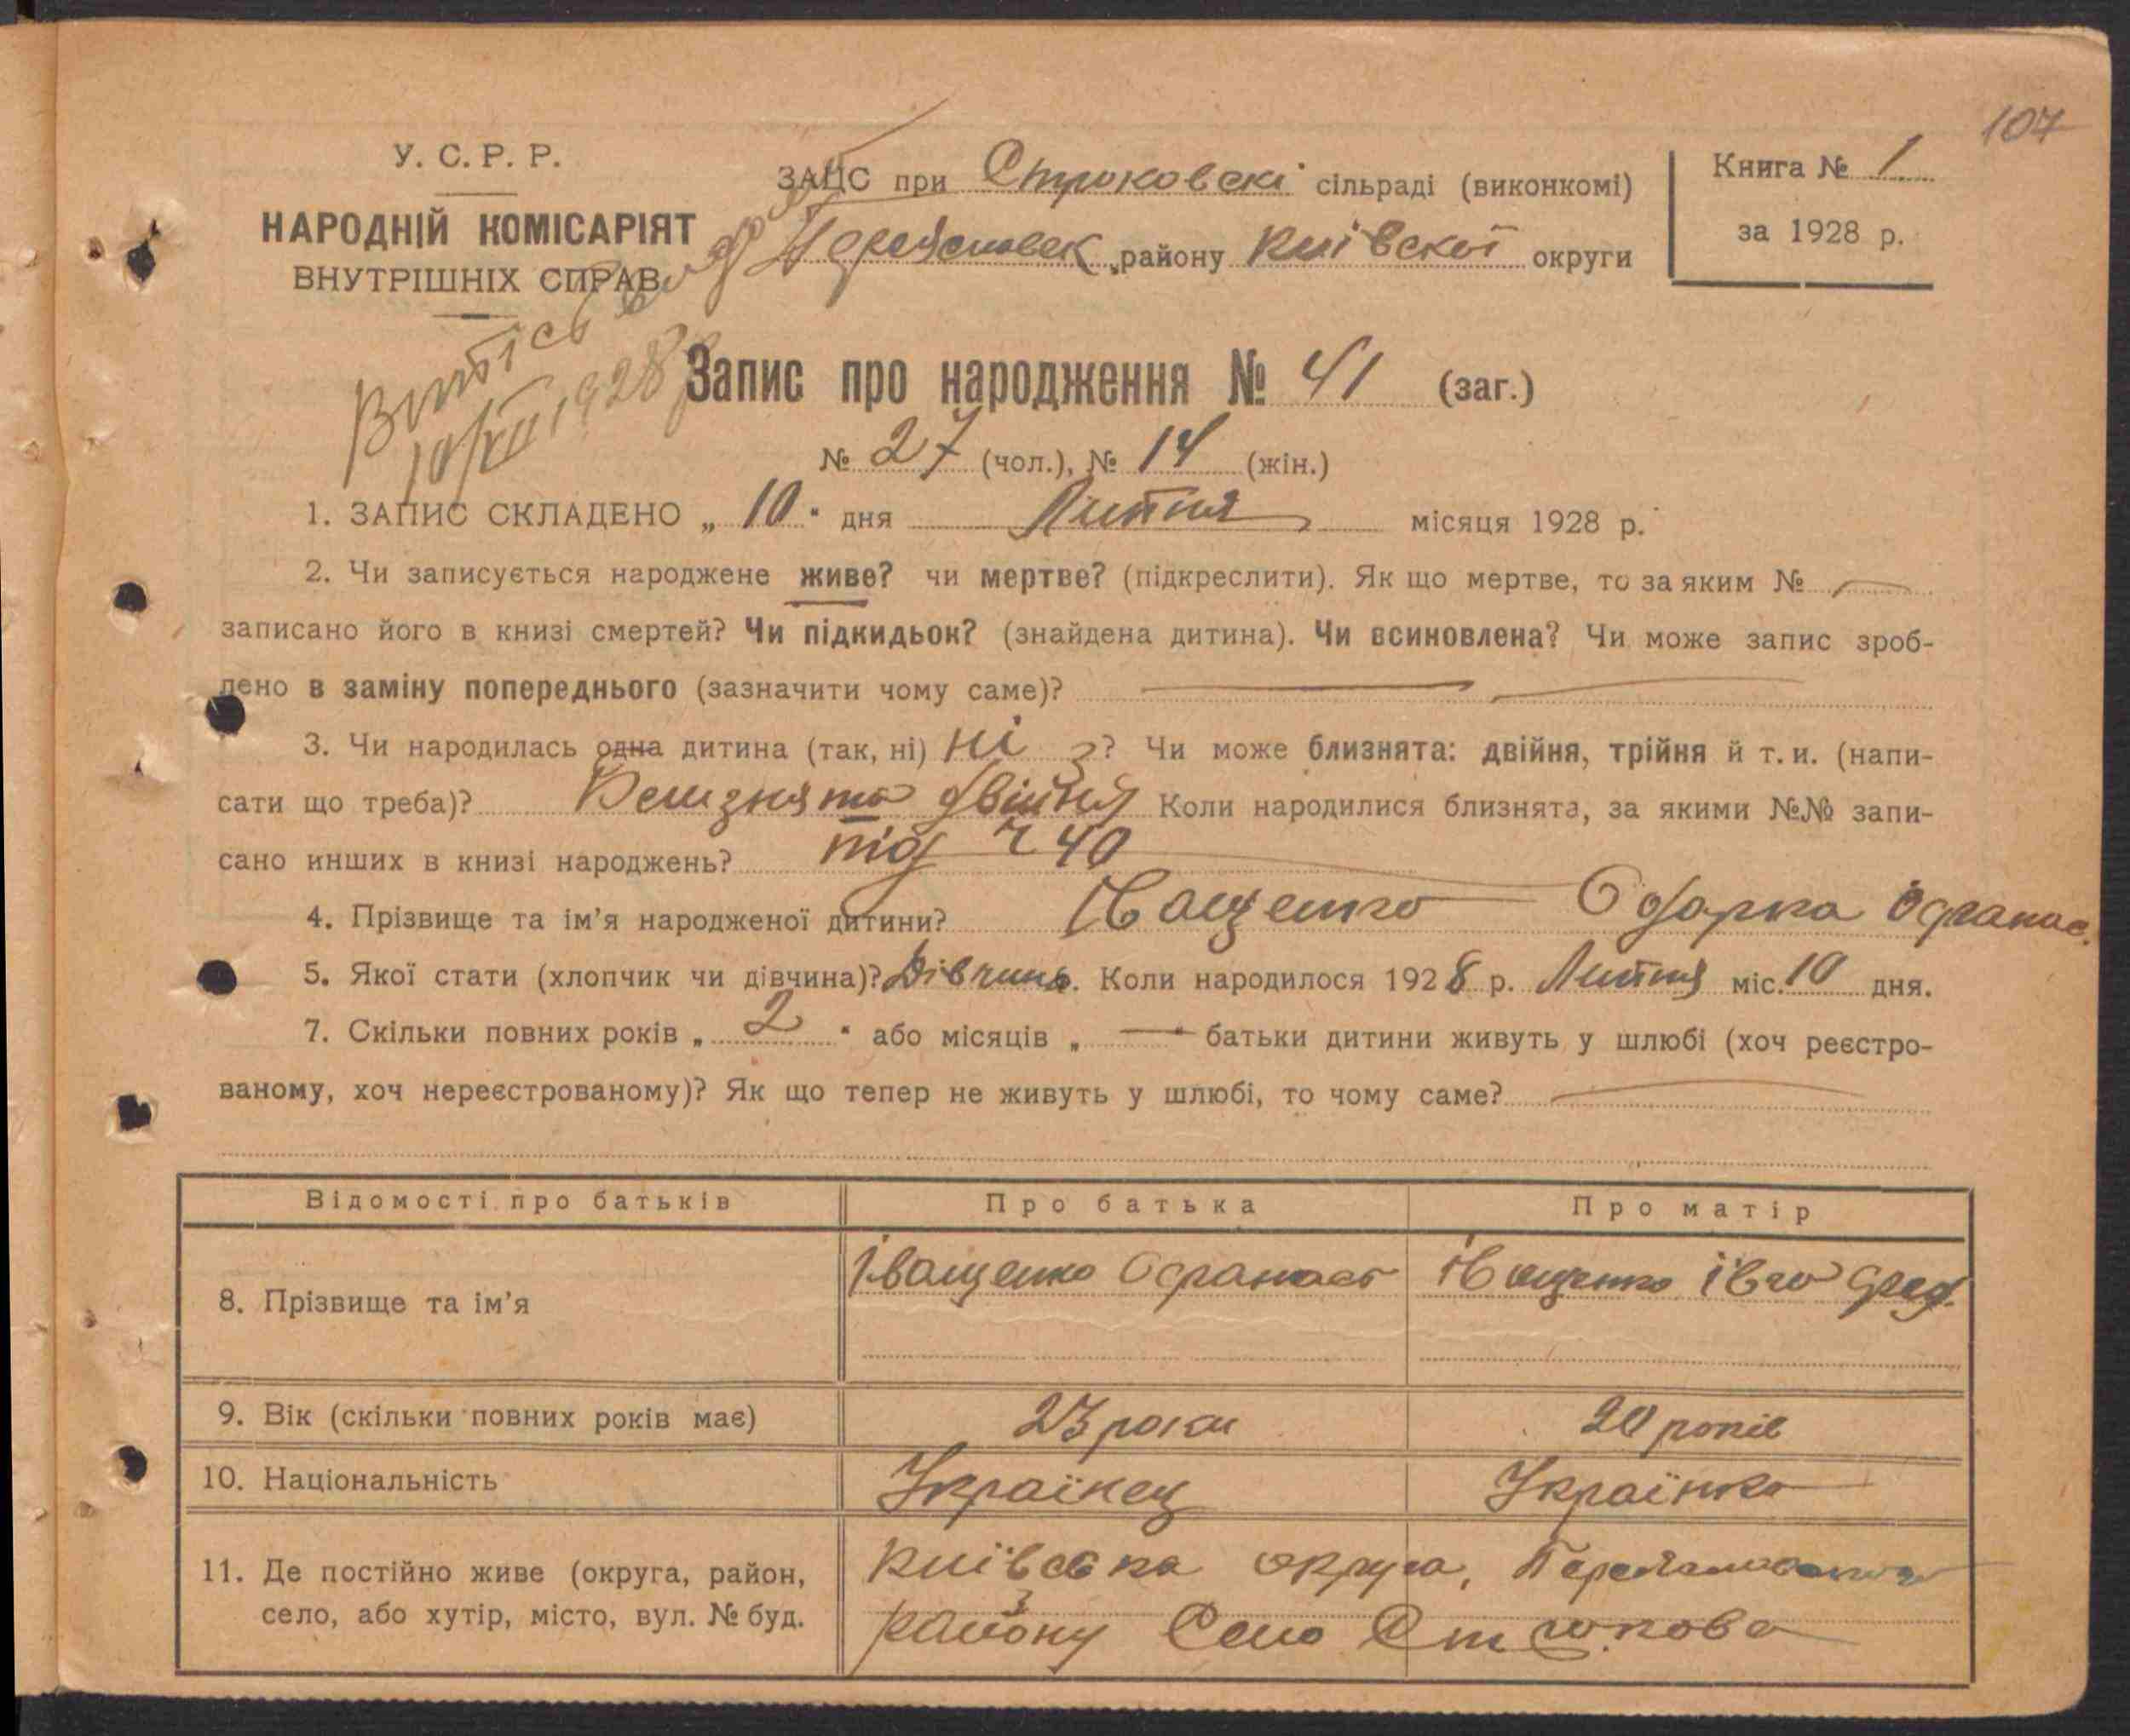 107
У. С. Р. Р.
НАРОДНІЙ КОМІСАРІЯТ
ВНУТРІШНІХ СПРАВ
ЗАЦС при Строковскі сільраді (виконкомі)
району Київскої округи
Книга № 1
за 1928 р.
10/VII 1928 р
Запис про народження № 41 (заг.)
№ 27 (чол.), № 14 (жін.)
1. ЗАПИС СКЛАДЕНО „ 10 " дня Липня місяця 1928 р.
2. Чи записується народжене живе? чи мертве? (підкреслити). Як що мертве, то за яким №
записано його в книзі смертей? Чи підкидьок? (знайдена дитина). Чи всиновлена? Чи може запис зроб-
лено в заміну попереднього (зазначити чому саме)?
3. Чи народилась одна дитина (так, ні) ні ? Чи може близнята: двійня, трійня й т. и. (напи-
сати що треба)? Близнята двійня Коли народилися близнята, за якими №№ запи-
сано инших в книзі народжень? під ч 40
4. Прізвище та ім'я народженої дитини? Іващенко Одарка Офанас.
5. Якої стати (хлопчик чи дівчина)? Дівчина. Коли народилося 1928 р. Липня міс. 10 дня.
7. Скільки повних років „ 2 " або місяців „ — " батьки дитини живуть у шлюбі (хоч реєстро-
ваному, хоч нереєстрованому)? Як що тепер не живуть у шлюбі, то чому саме?
Відомості про батьків Про батька Про матір
8. Прізвище та ім'я Іващенко Офанас Іващенко Івга
9. Вік (скільки повних років має) 23 роки 20 років
10. Національність Українец Українка
11. Де постійно живе (округа, район, Київська округа,
село, або хутір, місто, вул. № буд. району Село Строкова